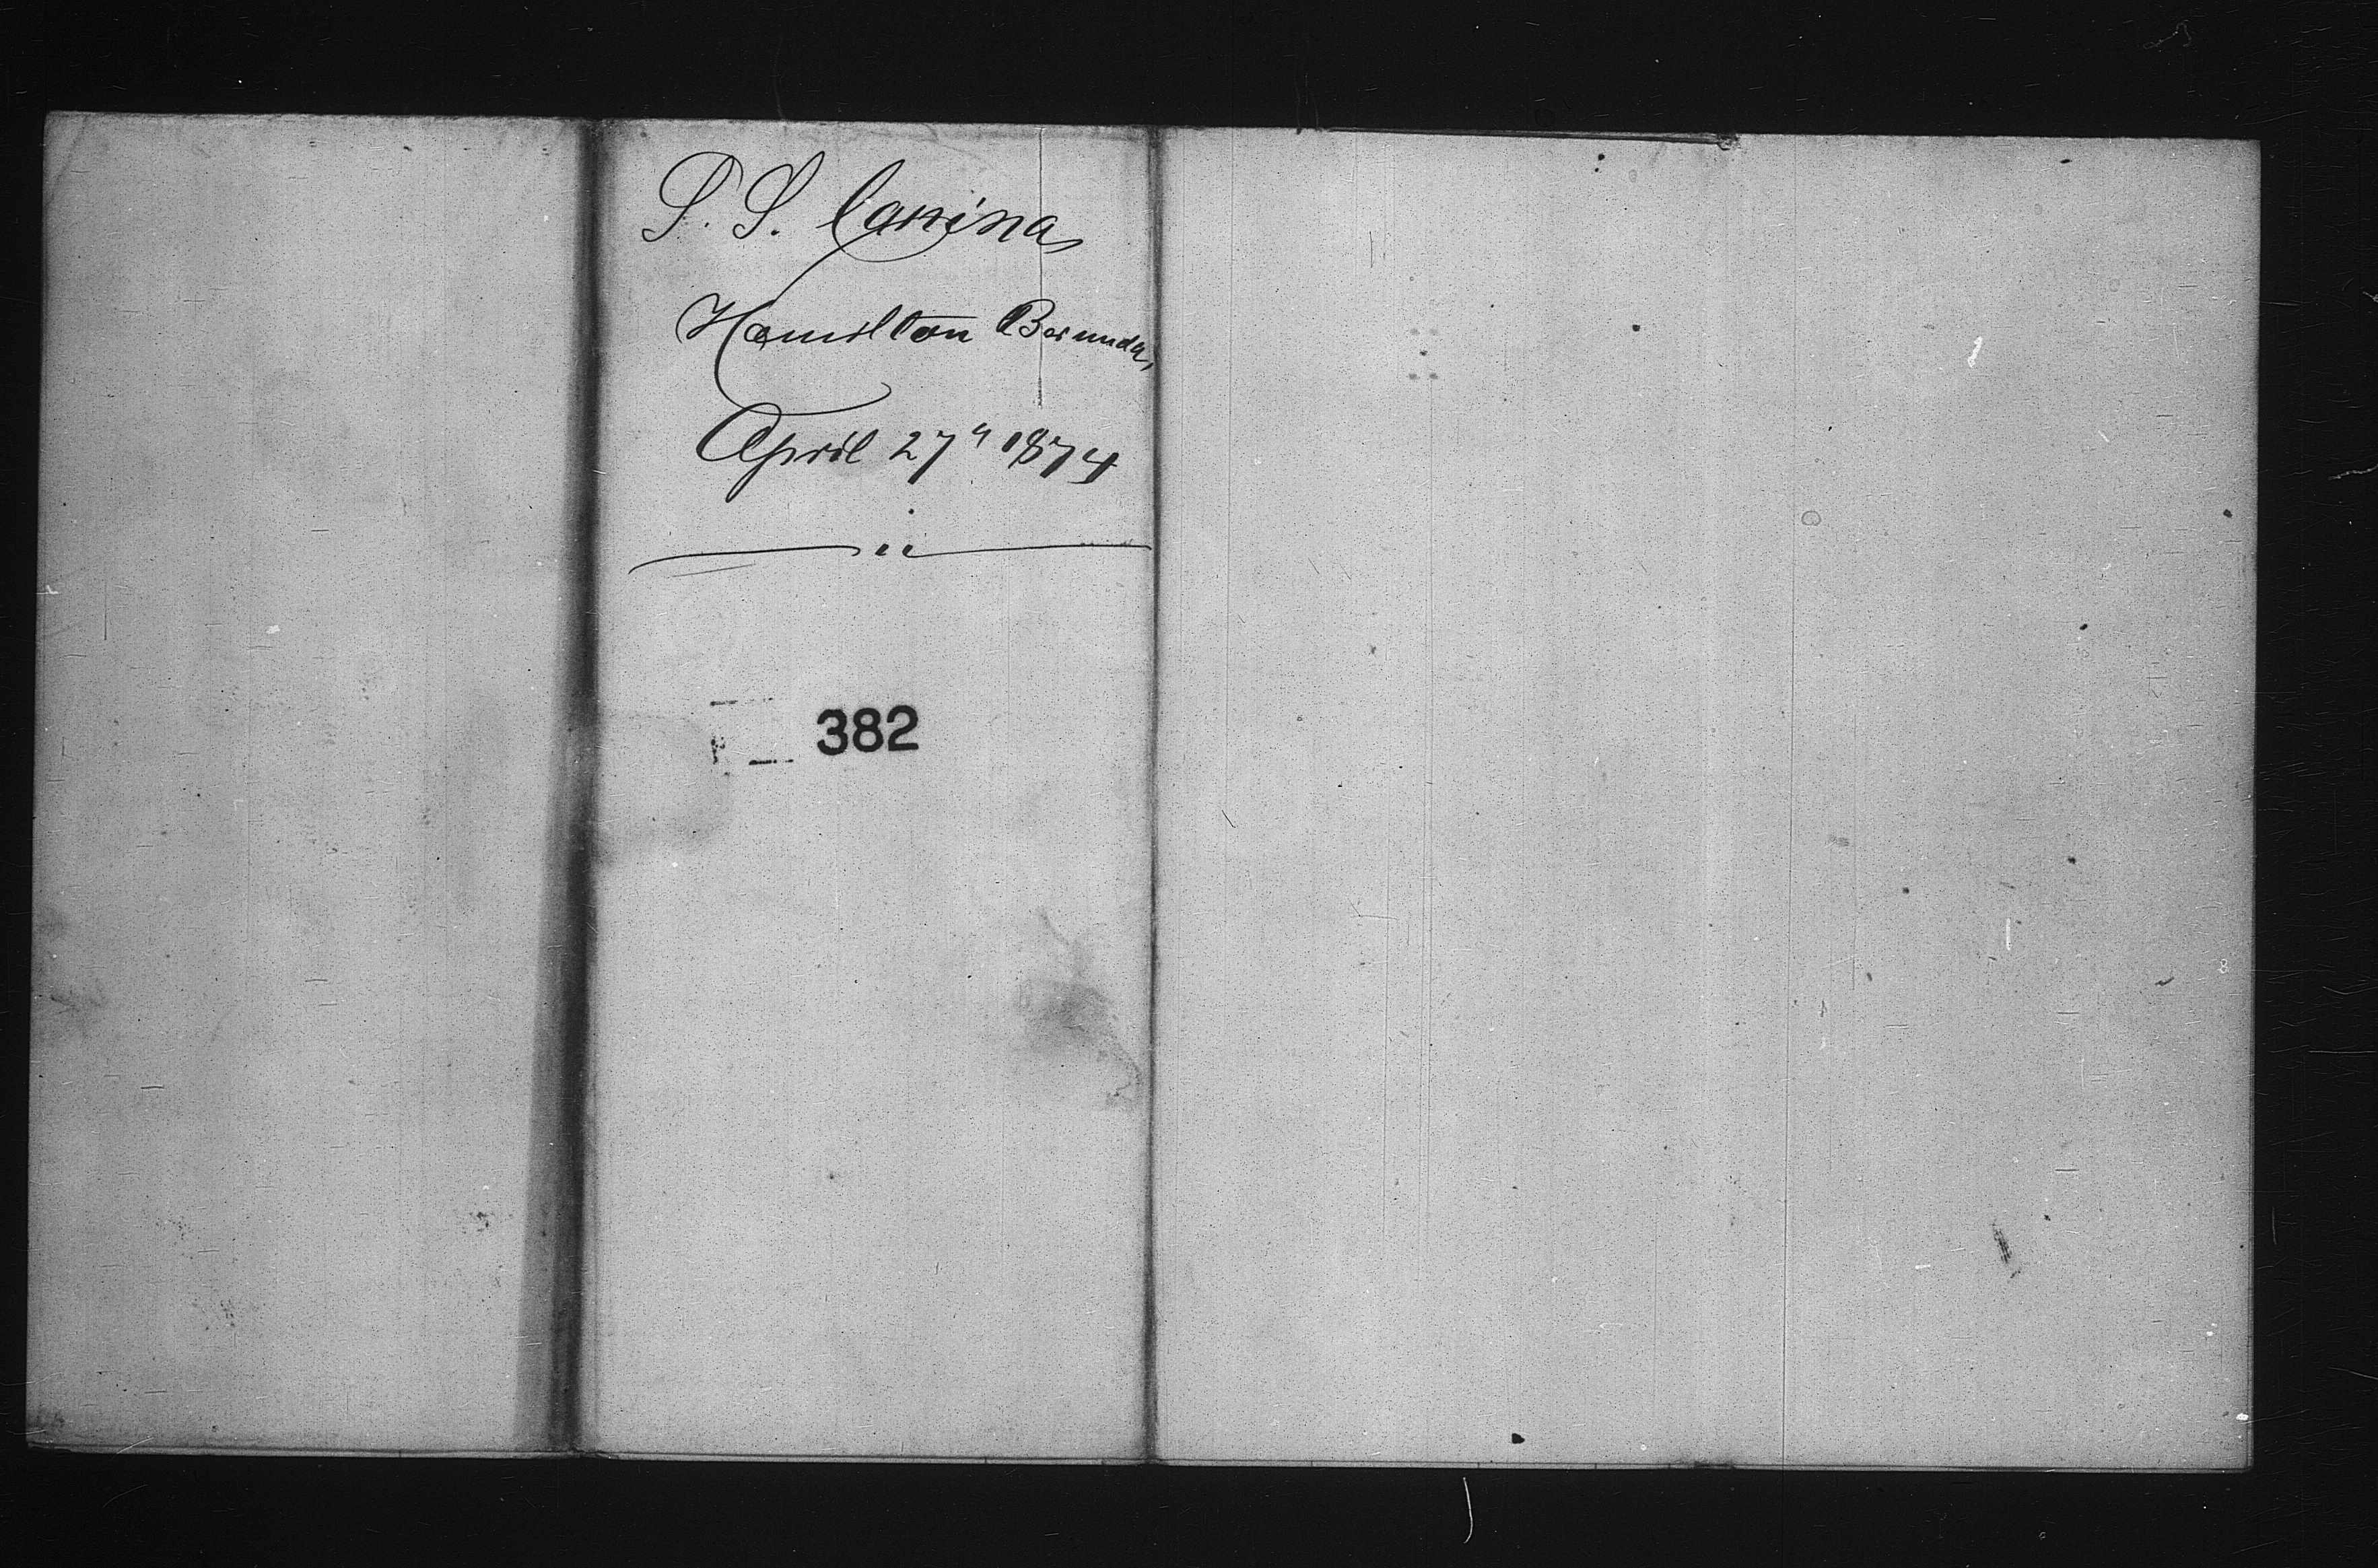 S. S. Canima,
Hamilton Bermuda,
April 27" 1874
382